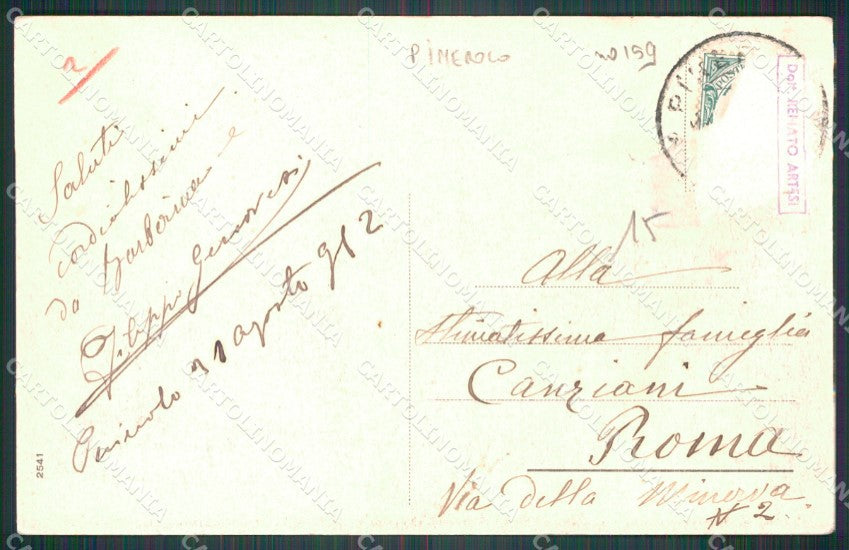 PINEROLO
no 159
Dott. RENATO ARTESI
POSTE
15
Saluti
cordialissimi
da Barberina e
Filippo Genovesi
Pinerolo 31 agosto 912
Alla
Stimatissima famiglia
Canziani
Roma
Via della Minerva
N 2
2541
CARTOLINOMANIA